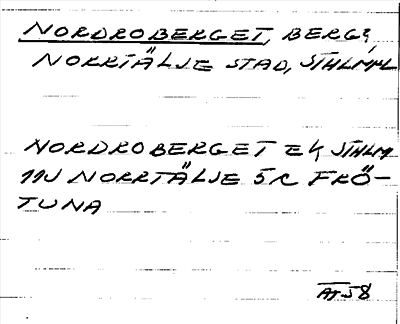 NORDROBERGET, BERG,
NORRTÄLJE STAD, STHLMS L
NORDROBERGET EK STHLM
11J NORRTÄLJE 5R FRÖ-
TUNA
AJ58